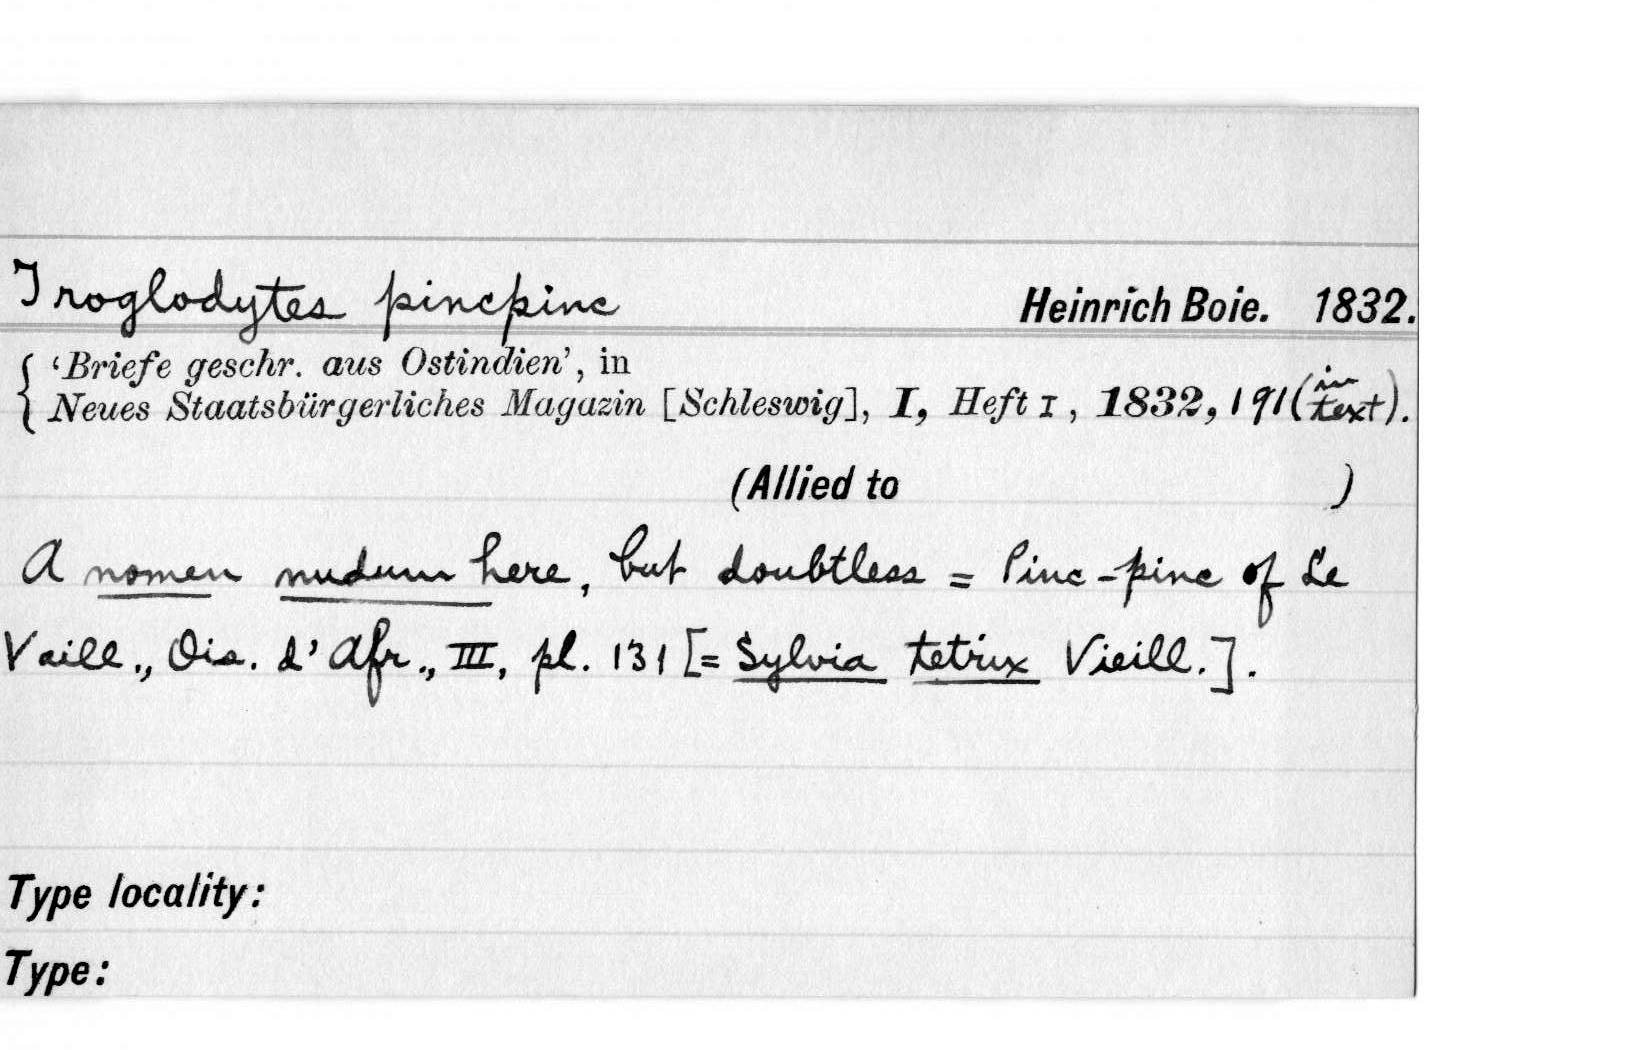 Troglodytes pincpinc Heinrich Boie. 1832.
'Briefe geschr. aus Ostindien', in
Neues Staatsbürgerliches Magazin [Schleswig], I, Heft I, 1832, 191 (in text).
(Allied to )
A nomen nudum here, but doubtless = Pinc-pinc of Le
Vaill., Ois. d'Afr., III, pl. 131 [= Sylvia tetrix Vieill.].
Type locality:
Type: